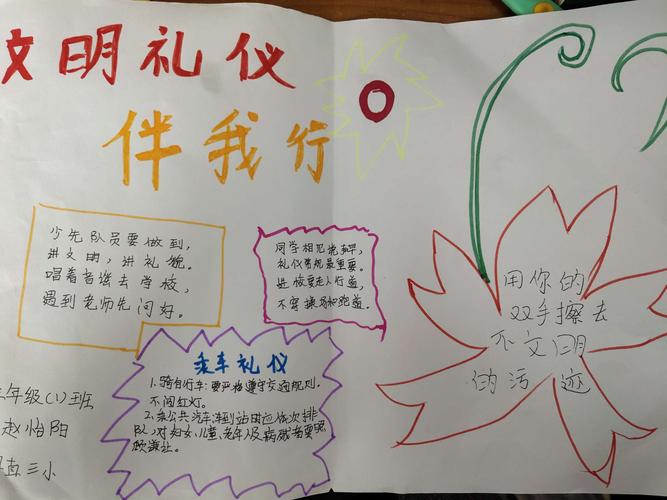 文明礼仪
伴我行
少先队员要做到,
讲文明,讲礼貌。
唱着音符去学校,
遇到老师先问好。
同学相见说声早,
礼仪常规最重要。
进校要走人行道,
不穿操场和跑道。
乘车礼仪
1.骑自行车:要严格遵守交通规则.
不闯红灯。
2.乘公共汽车:车到站时应依次排
队,对妇女、儿童、老年人及病残者要照
顾谦让。
年级(1)班
赵怡阳
三小
用你的
双手擦去
不文明
的污迹